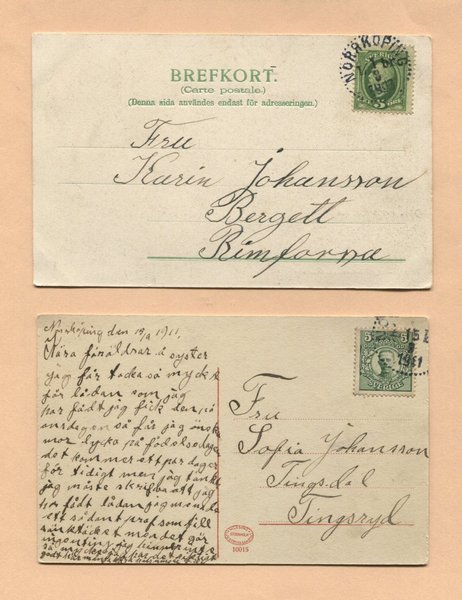 BREFKORT.
(Carte postale.)
(Denna sida användes endast för adresseringen.)
NORRKÖPING
SVERIGE
Fru
Karin Johansson
Bergett
Rimforssa
Norrköping den 1911.
Kära föräldrar å syster
jag får tacka så mycket
för lådan som jag
har fådt jag fick den på
onsdagen så får jag önska
mor lycka på födelsedagen
det kommer ett par dagar
för tidigt men jag tänkte
jag måste skrifva att jag
har fådt lådan
ett sådant
men det gör
ingenting jag hinner inte
5 5
SVERIGE
1911
Fru
Sofia Johansson
Tingsdal
Tingsryd
10015